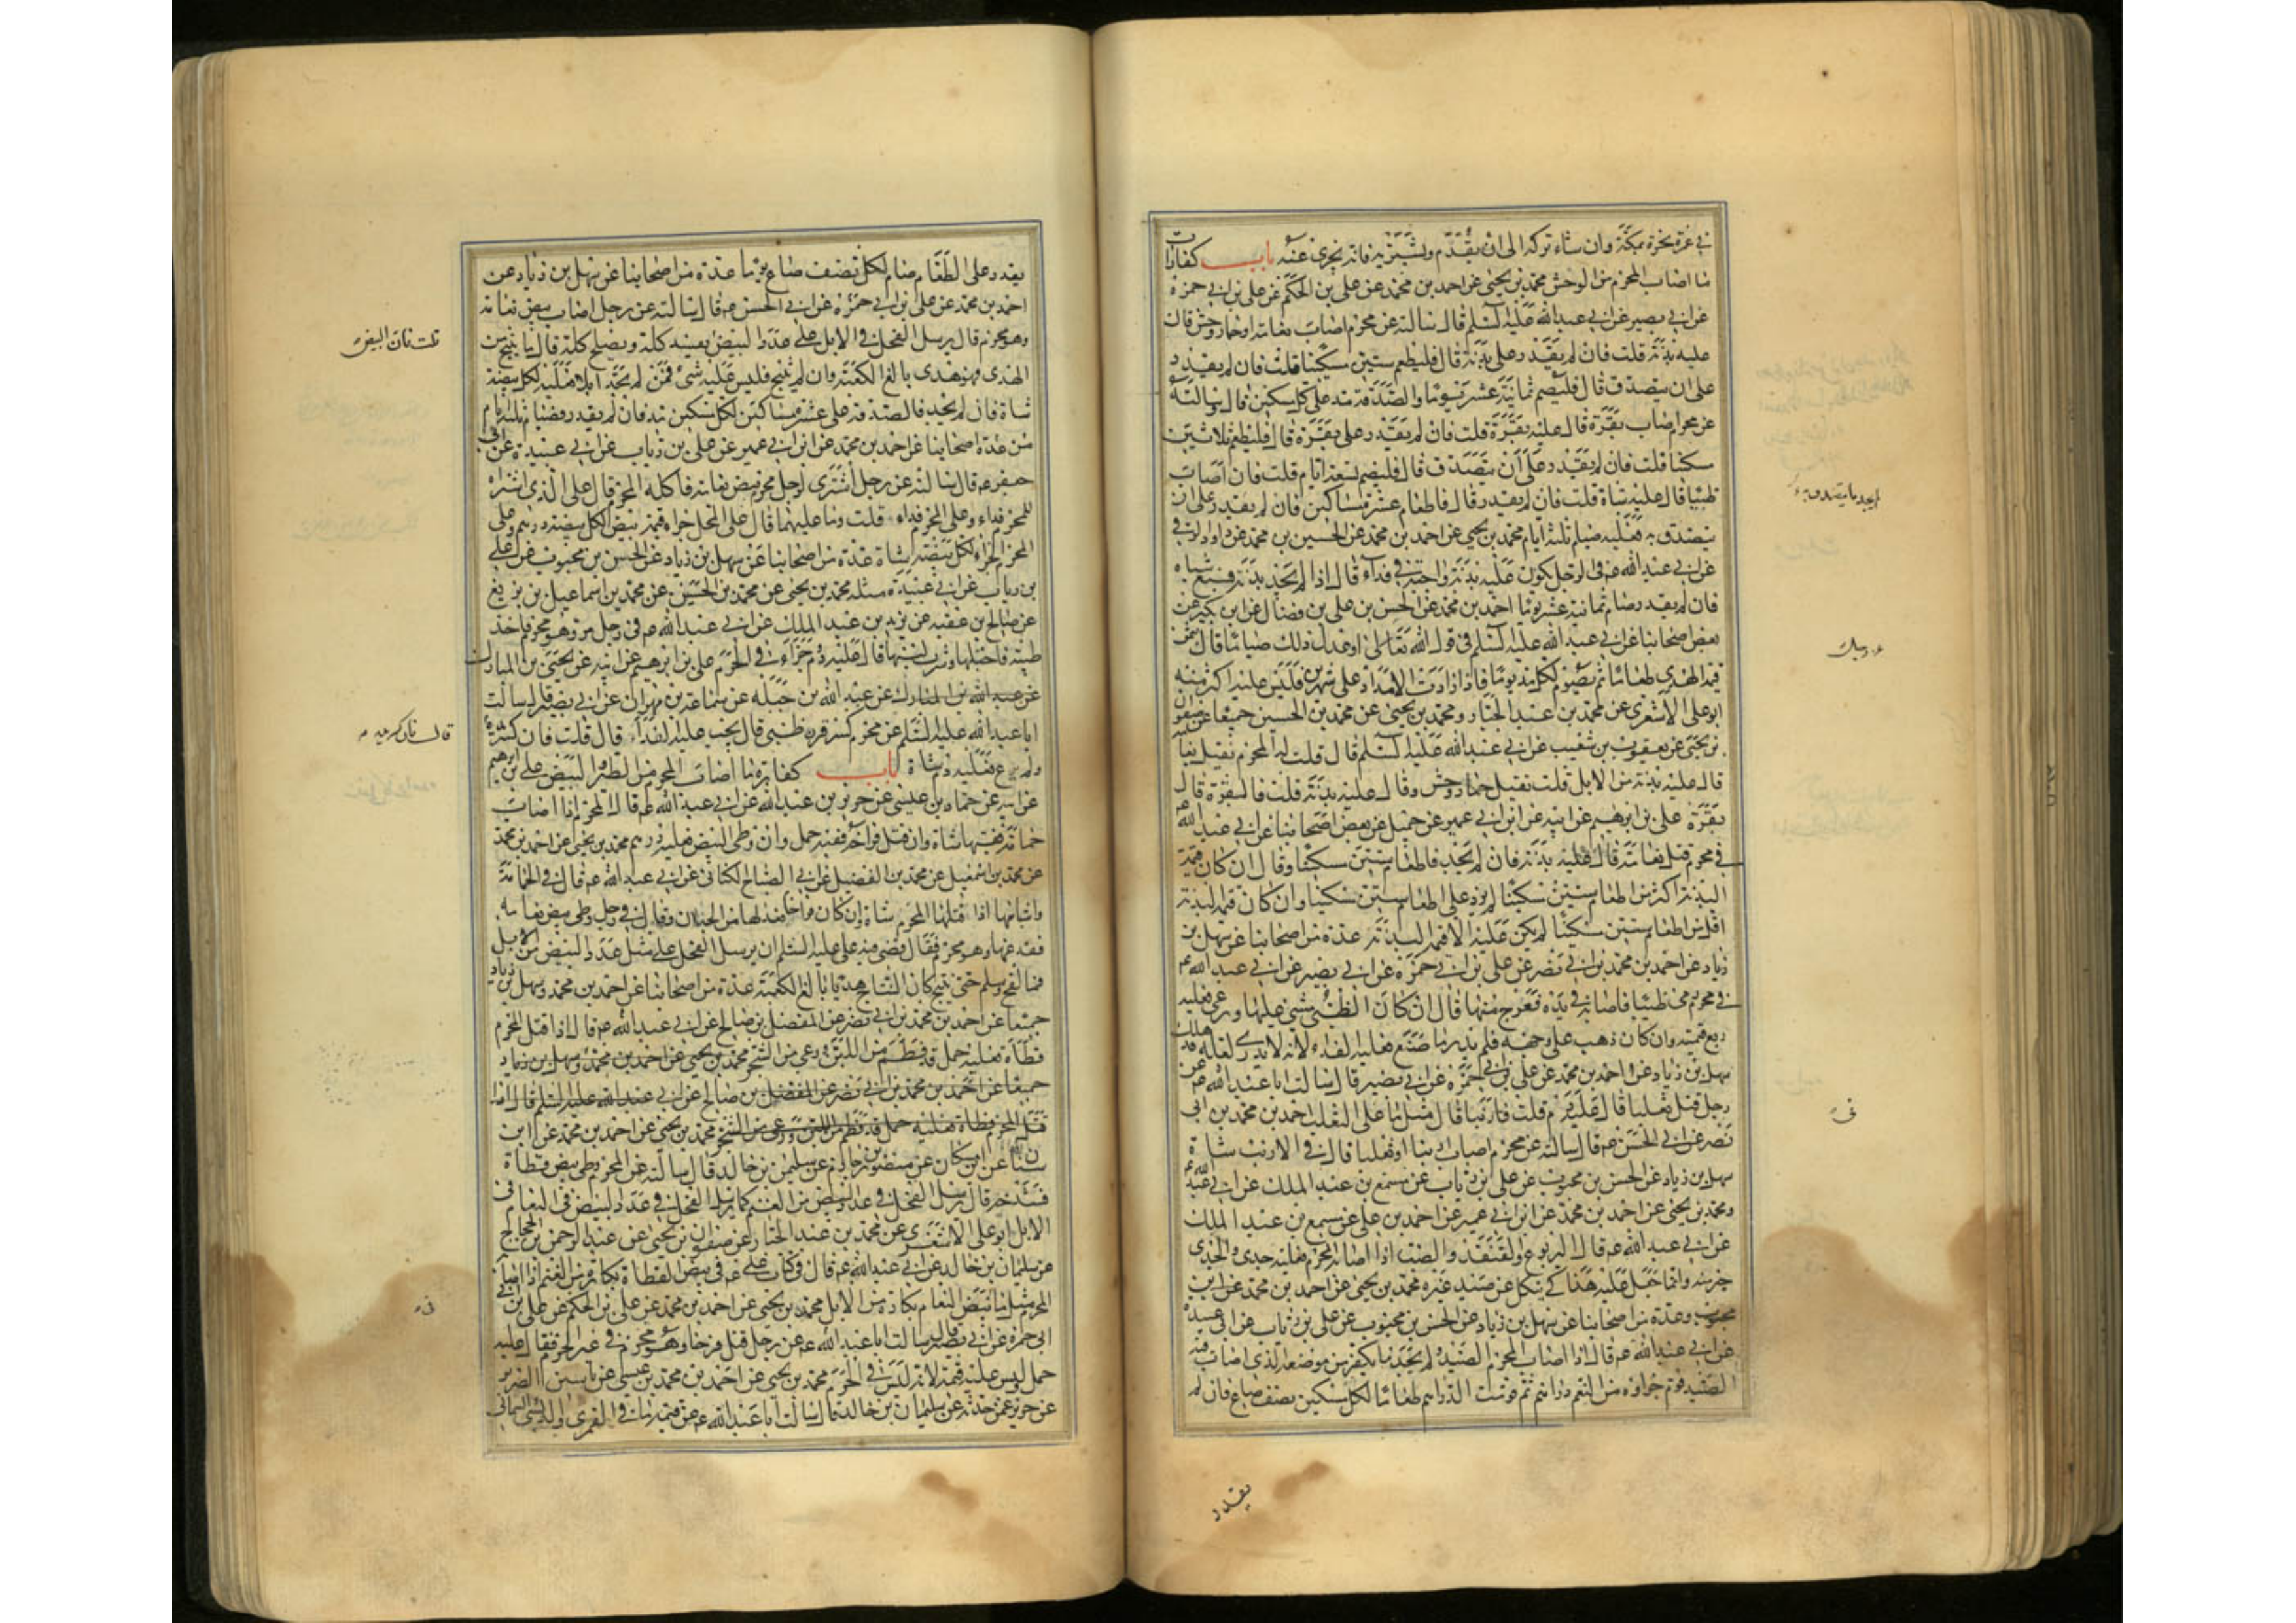 في عمرة نحره بمكة وان شاء تركه الى ان يقدم ويشتريه فانه يجزى عنه باب كفارات
ما اصاب المحرم من الوحش محمد بن يحيى عن احمد بن محمد عن على بن الحكم عن على بن ابى حمزة
عن ابى بصير عن ابى عبد الله عليه السلم قال سالته عن محرم اصاب نعامة او حمار وحش قال
عليه بدنة قلت فان لم يقدر على بدنة قال فليطعم ستين مسكينا قلت فان لم يقدر
على ان يتصدق قال فليصم ثمانية عشر يوما والصدقة مد على كل مسكين قال وسالته
عن محرم اصاب بقرة قال عليه بقرة قلت فان لم يقدر على بقرة قال فليطعم ثلاثين
مسكينا قلت فان لم يقدر على ان يتصدق قال فليصم تسعة ايام قلت فان اصاب
ظبيا قال عليه شاة قلت فان لم يقدر قال فاطعام عشرة مساكين فان لم يقدر على ان
يتصدق به فعليه صيام ثلثة ايام محمد بن يحيى عن احمد بن محمد عن الحسين بن محمد عن داود الرقى
عن ابى عبد الله عم فى الرجل يكون عليه بدنة واجبة في فداء قال اذا لم يجد بدنة فسبع شياه
فان لم يقدر صام ثمانية عشر يوما احمد بن محمد عن الحسن بن على بن فضال عن ابن بكير عن
بعض اصحابنا عن ابى عبد الله عليه السلم فى قول الله تعالى او عدل ذلك صياما قال يثمن
قيمة الهدى طعاما ثم يصوم لكل مد يوما فاذا زادت الامداد على شهرين فليس عليه اكثر منه
ابو على الاشعرى عن محمد بن عبد الجبار ومحمد بن يحيى عن محمد بن الحسين جميعا عن صفوان
بن يحيى عن يعقوب بن شعيب عن ابى عبد الله عليه السلم قال قلت له المحرم يقتل نعامة
قال عليه بدنة من الابل قلت يقتل حمار وحش وقال عليه بدنة قلت فالبقرة قال
بقرة على بن ابرهيم عن ابيه عن ابن ابى عمير عن جميل عن بعض اصحابنا عن ابى عبد الله عم
في محرم قتل نعامة قال عليه بدنة فان لم يجد فاطعام ستين مسكينا وقال ان كان قيمة
البدنة اكثر من اطعام ستين مسكينا لم يزد على اطعام ستين مسكينا وان كان قيمة البدنة
اقل من اطعام ستين مسكينا لم يكن عليه الا قيمة البدنة عدة من اصحابنا عن سهل بن
زياد عن احمد بن محمد بن ابى نصر عن على بن ابى حمزة عن ابى بصير عن ابى عبد الله عم
في محرم رمى ظبيا فاصابه في يده فعرج منها قال ان كان الظبى مشى عليها ورعى فعليه
ربع قيمته وان كان ذهب على وجهه فلم يدر ما صنع فعليه الفداء لانه لا يدرى لعله قد هلك
سهل بن زياد عن احمد بن محمد عن على بن ابى حمزة عن ابى بصير قال سالت ابا عبد الله عم عن
رجل قتل ثعلبا قال عليه دم قلت فارنبا قال مثل ما على الثعلب احمد بن محمد بن ابى
نصر عن ابى الحسن عم قال سالته عن محرم اصاب ارنبا او ثعلبا قال فى الارنب شاة
سهل بن زياد عن الحسن بن محبوب عن على بن رئاب عن مسمع بن عبد الملك عن ابى عبد الله عم
ومحمد بن يحيى عن احمد بن محمد عن ابن ابى عمير عن احمد بن على عن مسمع بن عبد الملك
عن ابى عبد الله عم قال اليربوع والقنفذ والضب اذا اصابه المحرم فعليه جدى والجدى
خير منه وانما جعل عليه هذا كى ينكل عن صيد غيره محمد بن يحيى عن احمد بن محمد عن ابن
محبوب وعدة من اصحابنا عن سهل بن زياد عن الحسن بن محبوب عن على بن رئاب عن ابى عبيدة
عن ابى عبد الله عم قال اذا اصاب المحرم الصيد ولم يجد ما يكفر من موضعه الذى اصاب فيه
الصيد قوم جزاؤه من النعم دراهم ثم قومت الدراهم طعاما لكل مسكين نصف صاع فان لم
يقدر
لم يجد ما يتصدق به
يقدر على الطعام صام لكل نصف صاع يوما عدة من اصحابنا عن سهل بن زياد عن
احمد بن محمد عن على بن ابى حمزة عن ابى الحسن عم قال سالته عن رجل اصاب بيض نعامة
وهو محرم قال يرسل الفحل في الابل على عدد البيض
الهدى وهو هدى بالغ الكعبة وان لم ينتج فليس عليه شئ فمن لم يجد ابلا فعليه لكل بيضة
شاة فان لم يجد فالصدقة على عشرة مساكين لكل مسكين مد فان لم يقدر فصيام ثلثة ايام
عدة اصحابنا عن احمد بن محمد عن ابن ابى عمير عن على بن رئاب عن ابى عبيدة عن ابى
جعفر عم قال سالته عن رجل اشترى لرجل محرم بيض نعامة فاكله المحرم قال على الذى اشتراه
للمحرم فداء وعلى المحرم فداء قلت وما عليهما قال على المحل جزاء قيمة البيض لكل بيضة درهم وعلى
المحرم الجزاء لكل بيضة شاة عدة من اصحابنا عن سهل بن زياد عن الحسن بن محبوب عن على
بن رئاب عن ابى عبيدة مثله محمد بن يحيى عن محمد بن الحسين عن محمد بن اسماعيل بن بزيع
عن صالح بن عقبه عن يزيد بن عبد الملك عن ابى عبد الله عم فى رجل مر وهو محرم فاخذ
ظبية فاحتلبها وشرب لبنها قال عليه دم جزاء في الحرم على بن ابرهيم عن ابيه عن يحيى بن المبارك
عن عبد الله بن المبارك عن عبد الله بن جبله عن سماعة بن مهران عن ابى بصير قال سالت
ابا عبد الله عليه السلم عن محرم كسر قرن ظبى قال يجب عليه الفداء قال قلت فان كسر يده
ولم يرع فعليه دم شاة باب كفارة ما اصاب المحرم من الطير والبيض على بن ابرهيم
عن ابيه عن حماد بن عيسى عن حريز بن عبد الله عن ابى عبد الله عم قال المحرم اذا اصاب
حمامة ففيها شاة وان قتل فراخه ففيه حمل وان وطى البيض فعليه درهم محمد بن يحيى عن احمد بن محمد
عن محمد بن اسمعيل عن محمد بن الفضيل عن ابى الصباح الكنانى عن ابى عبد الله عم قال فى الحمامة
واشباهها اذا قتلها المحرم شاة وان كان فراخا فعدلها من الحملان وقال فى رجل وطى بيض نعامة
ففدغها وهو محرم فقال قضى فيه على عليه السلم ان يرسل الفحل على مثل عدد البيض من الابل
فما لقح وسلم حتى ينتج كان النتاج هديا بالغ الكعبة عدة من اصحابنا عن احمد بن محمد وسهل بن زياد
جميعا عن احمد بن محمد بن ابى نصر عن المفضل بن صالح عن ابى عبد الله عم قال اذا قتل المحرم
قطاة فعليه حمل قد فطم من اللبن ورعى من الشجر محمد بن يحيى عن احمد بن محمد وسهل بن زياد
جميعا عن احمد بن محمد بن ابى نصر عن المفضل بن صالح عن ابى عبد الله عليه السلم قال اذا
قتل المحرم قطاة فعليه حمل قد فطم من اللبن ورعى من الشجر محمد بن يحيى عن احمد بن محمد عن ابن
سنان عن ابن مسكان عن منصور بن حازم عن سليمن بن خالد قال سالته عن المحرم وطى بيض قطاة
فشدخه قال يرسل الفحل في عدد البيض من الغنم كما يرسل الفحل في عدد البيض فى النعام فى
الابل ابو على الاشعرى عن محمد بن عبد الجبار عن صفوان بن يحيى عن عبد الرحمن بن الحجاج
عن سليمان بن خالد عن ابى عبد الله عم قال فى كتاب على عم فى بيض القطاة بكارة من الغنم اذا اصابه
المحرم مثل ما فى بيض النعام بكارة من الابل محمد بن يحيى عن احمد بن محمد عن على بن الحكم عن على بن
ابى حمزة عن ابى بصير قال سالت ابا عبد الله عم عن رجل قتل فرخا وهو محرم في غير الحرم فقال عليه
حمل وليس عليه قيمته لانه ليس في الحرم محمد بن يحيى عن احمد بن محمد بن عيسى عن ياسين الضرير
عن حريز عمن حدثه عن سليمان بن خالد قال سالت ابا عبد الله عم عن قيمة ما في القمرى والدبسى والسمانى
قلت فان البيض